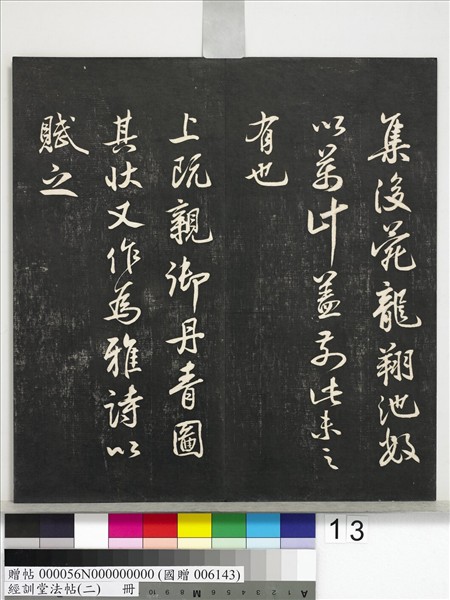 集後苑龍翔池數
以萬計蓋前此未之
有也
上既親御丹青圖
其狀又作為雅詩以
賦之
13
贈帖 000056N000000000 (國贈 006143)
經訓堂法帖(二) 冊